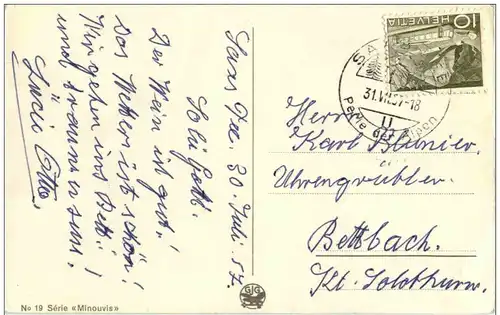 Saas Fee. 30. Juli 57.
Salü Zett.
Der Wein ist gut!
Das Wetter ist schön!
Wir gehen ins Bett!
und träumen süss,
Lucie Otto.
No 19 Série «Minouvis»
HELVETIA
10
31.VII.57-18
Perle der Alpen
Herrn
Karl
Uhrengrübler.
Bettbach.
Kt. Solothurn.